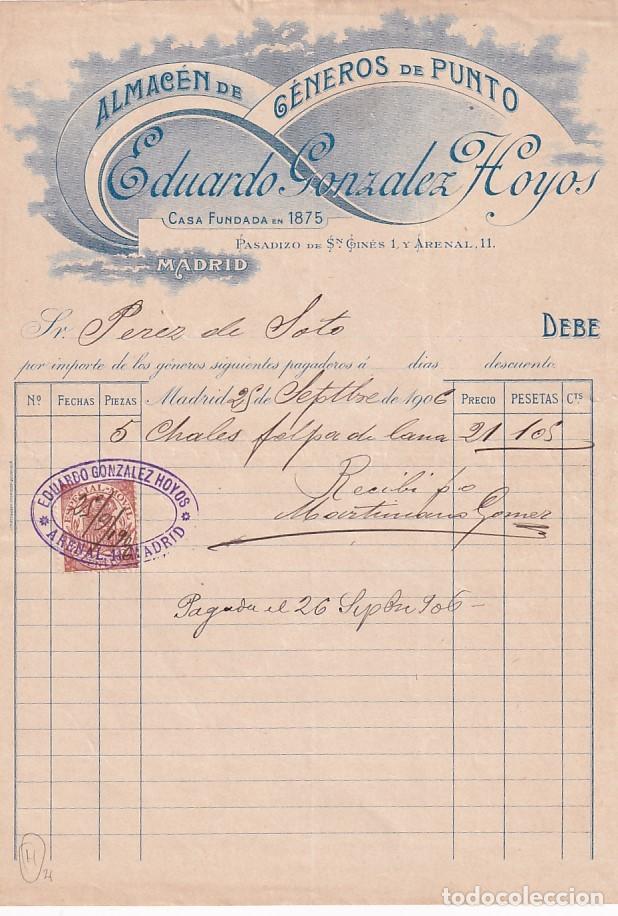 ALMACÉN DE GÉNEROS DE PUNTO
Eduardo Gonzalez Hoyos
CASA FUNDADA EN 1875
PASADIZO DE SN GINÉS 1, Y ARENAL, 11.
MADRID
Sr. Perez de Soto DEBE
por importe de los géneros siguientes pagaderos á días descuento.
Nº FECHAS PIEZAS Madrid 25 de Septbre de 1906 PRECIO PESETAS CTS
5 Chales felpa de lana 21 105
Recibi po
Martiniano Gomez
EDUARDO GONZALEZ HOYOS
ARENAL 11 MADRID
Pagada el 26 Sepbre 906
H
todocoleccion